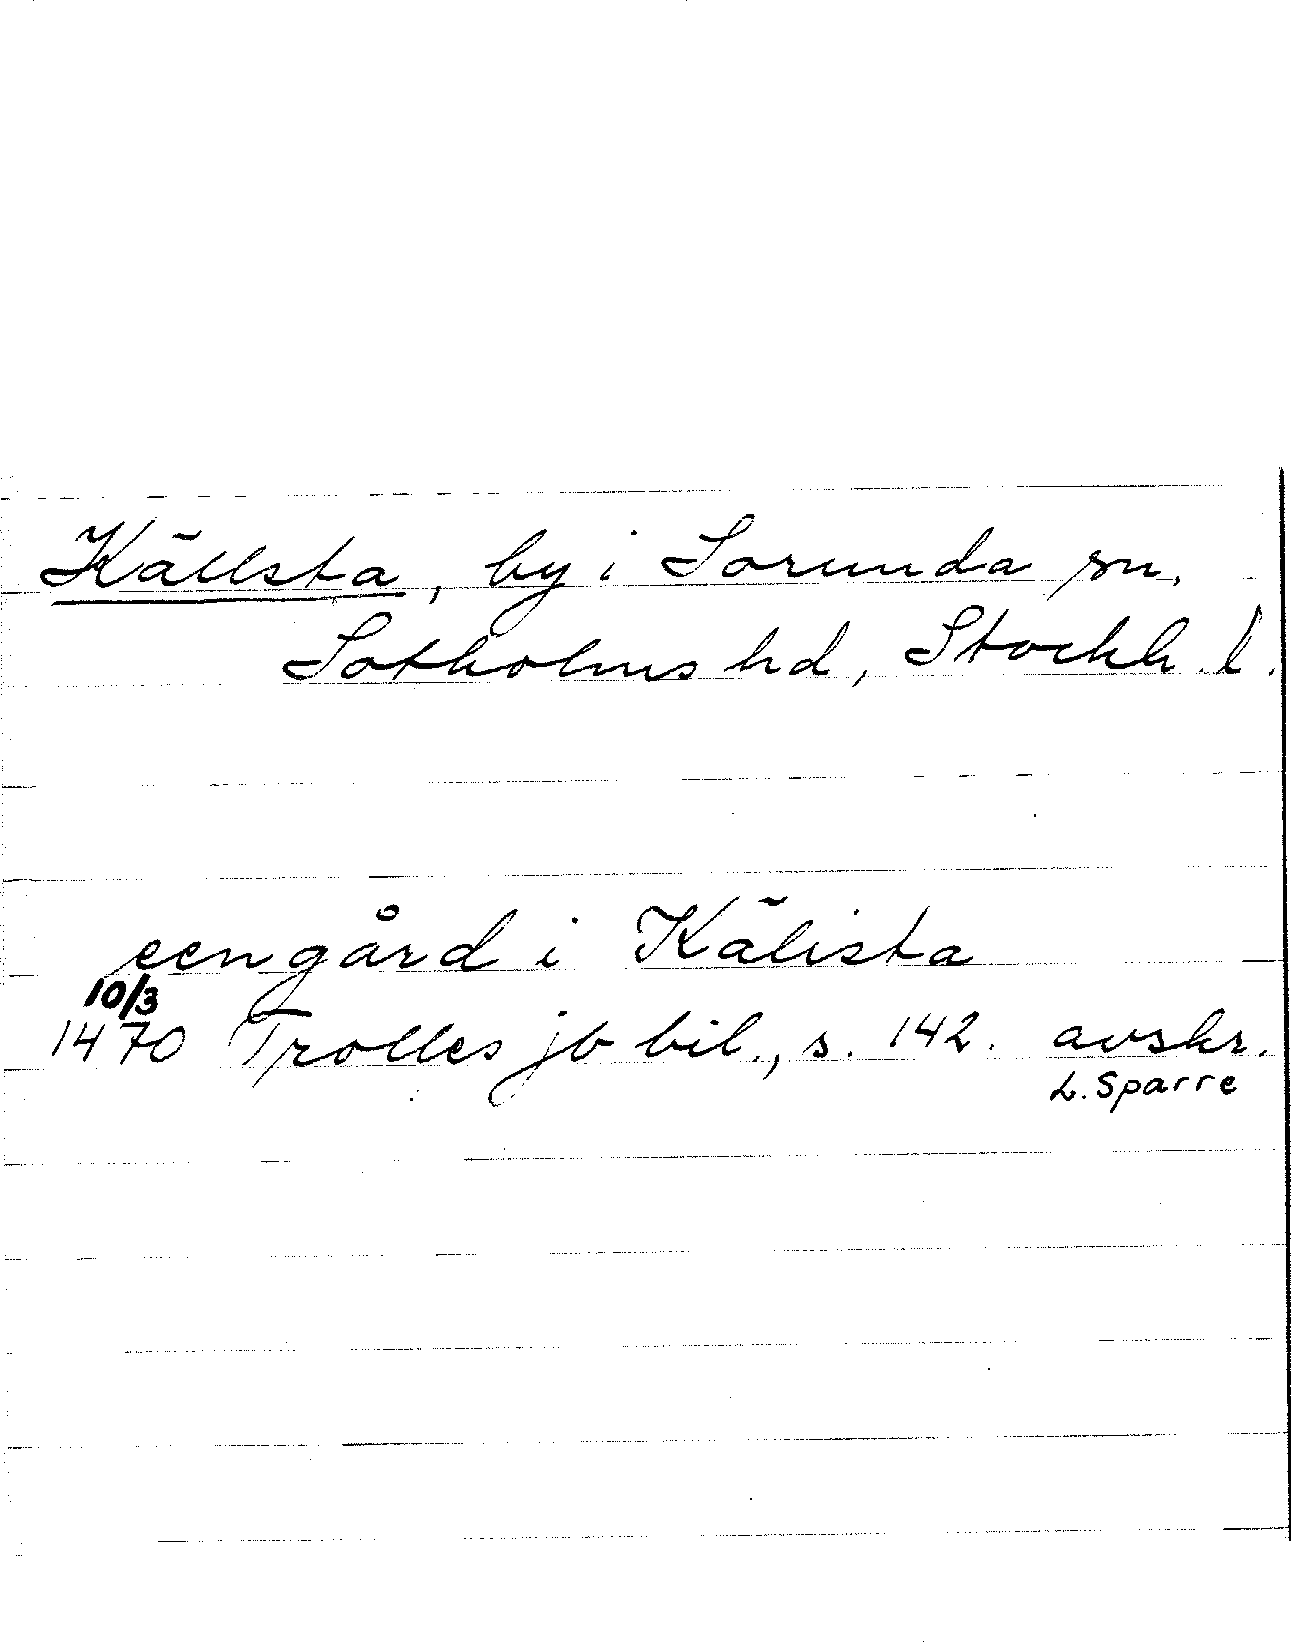 Källsta, by i Sorunda sn,
Sotholms hd, Stockh. l.
een gård i Kälista
10/3
1470 Trolles jb bil., s. 142. avskr.
L. Sparre